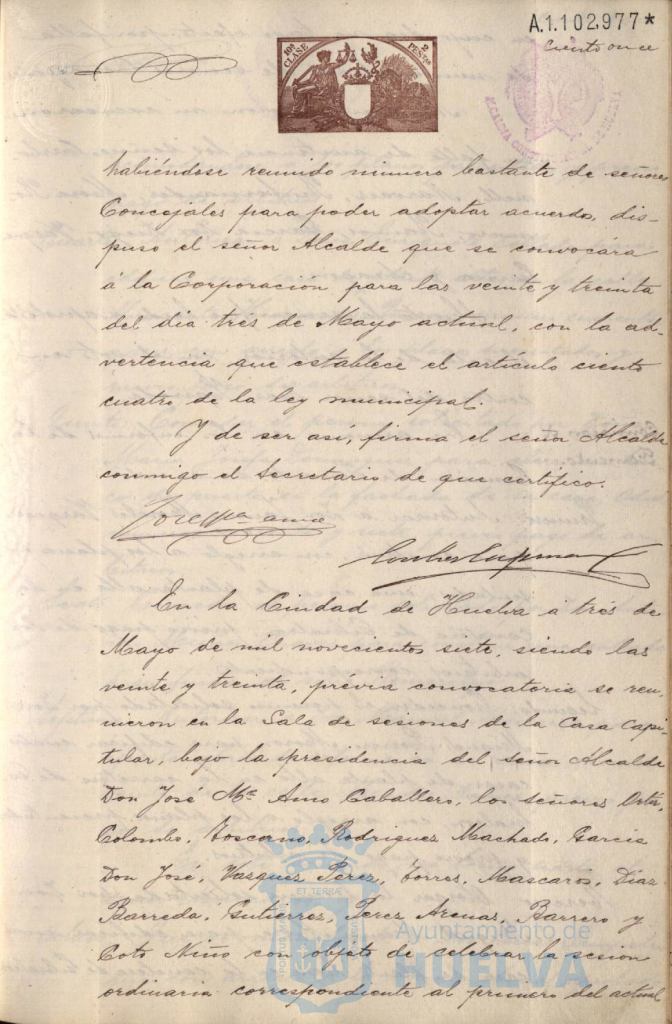 A.1.102,977*
Ciento once
10ª CLASE
2 PESETAS
habiéndose reunido número bastante de señores
Concejales para poder adoptar acuerdo, dis-
puso el señor Alcalde que se convocára
á la Corporación para las veinte y treinta
del dia tres de Mayo actual, con la ad-
vertencia que establece el artículo ciento
cuatro de la ley municipal.
Y de ser así, firma el señor Alcalde
conmigo el Secretario de que certifico.
En la Ciudad de Huelva á tres de
Mayo de mil novecientos siete, siendo las
veinte y treinta, prévia convocatoria se reu-
nieron en la Sala de sesiones de la Casa Capi-
tular, bajo la presidencia del señor Alcalde
Don José Mª Amo Caballero, los señores Ortiz,
Colombo, Toscano, Rodriguez Machado, Garcia
Don José, Vasquez Perez, Torres, Mascarós, Diaz
Barreda, Gutierrez, Perez Arenas, Barrero y
Coto Niño con objéto de celebrar la sesion
ordinaria correspondiente al primero del actual
Ayuntamiento de
HUELVA